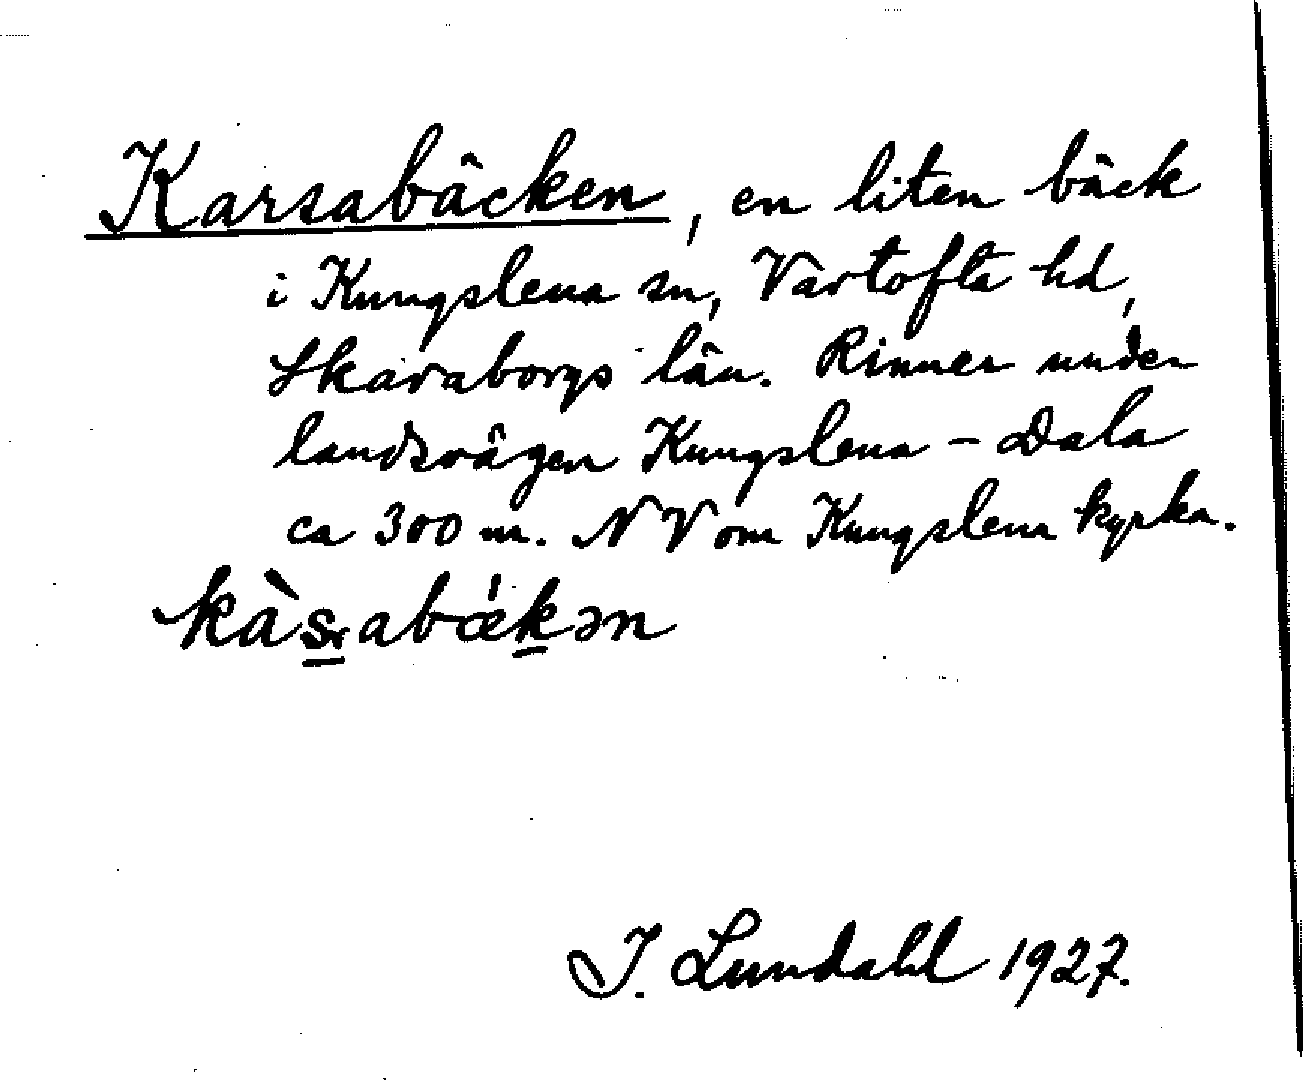 Karsabäcken, en liten bäck
i Kungslena sn, Vartofta hd,
Skaraborgs län. Rinner under
landsvägen Kungslena - Dala
ca 300 m. NV om Kungslena kyrka.
kàʂabǽkən
I. Lundahl 1927.